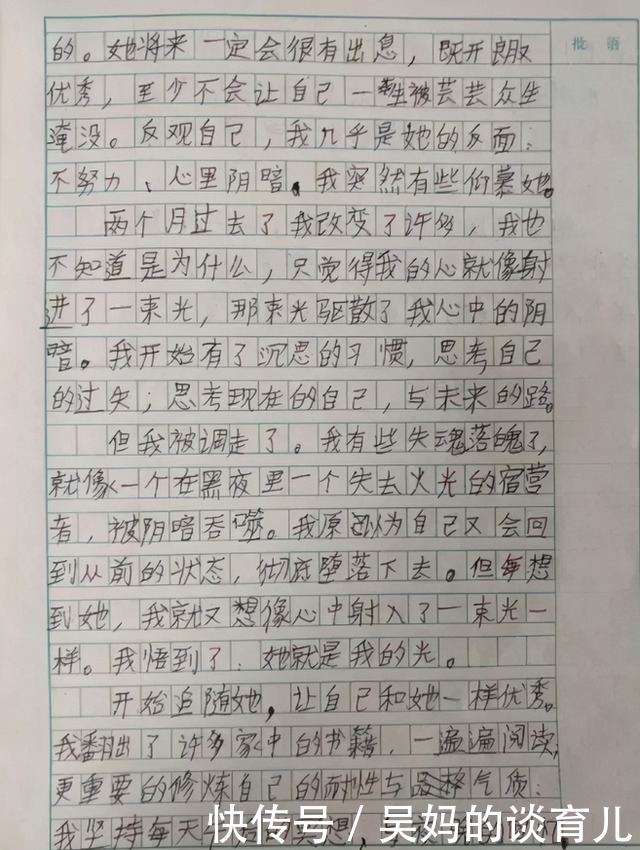 批 语
的。她将来一定会很有出息，既开朗又
优秀，至少不会让自己一生被芸芸众生
淹没。反观自己，我几乎是她的反面：
不努力、心里阴暗。我突然有些仰慕她。
两个月过去了我改变了许多，我也
不知道是为什么，只觉得我的心就像射
进了一束光，那束光驱散了我心中的阴
暗。我开始有了沉思的习惯，思考自己
的过失；思考现在的自己，与未来的路。
但我被调走了。我有些失魂落魄了，
就像一个在黑夜里一个失去火光的宿营
者，被阴暗吞噬。我原以为自己又会回
到从前的状态，彻底堕落下去。但每想
到她，我就又想像心中射入了一束光一
样。我悟到了：她就是我的光。
开始追随她，让自己和她一样优秀。
我翻出了许多家中的书籍，一遍遍阅读，
更重要的修炼自己的耐性与品格气质：
我坚持每天
快传号 / 吴妈的谈育儿